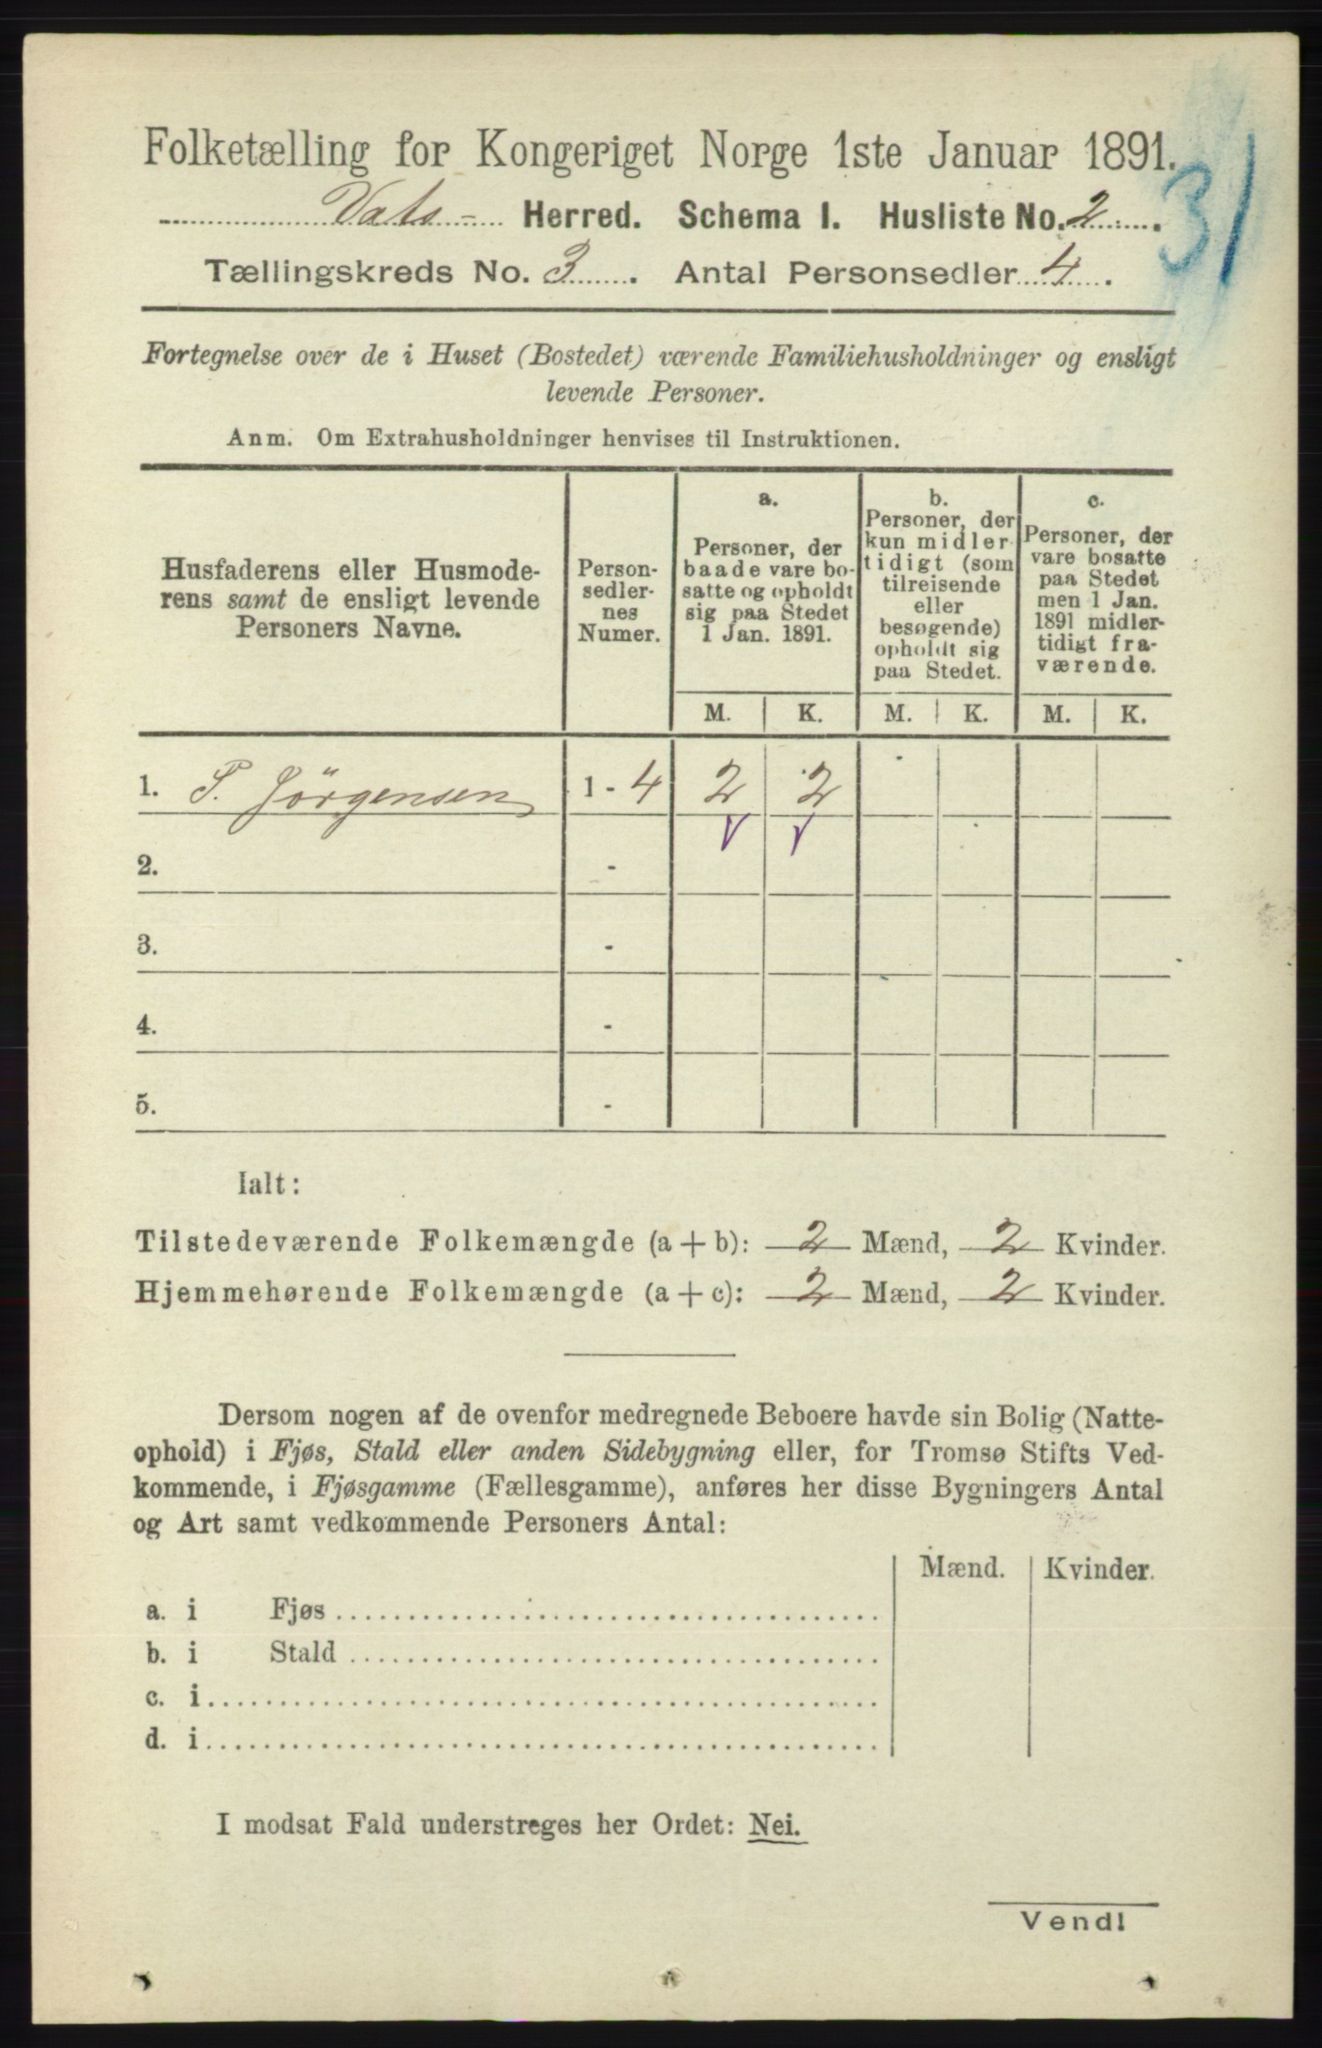 Folketælling for Kongeriget Norge 1ste Januar 1891.
31
Vats Herred. Schema I. Husliste No. 2
Tællingskreds No. 3. Antal Personsedler 4.
Fortegnelse over de i Huset (Bostedet) værende Familiehusholdninger og ensligt
levende Personer.
Anm. Om Extrahusholdninger henvises til Instruktionen.
Husfaderens eller Husmode-
rens samt de ensligt levende
Personers Navne.
Person-
sedler-
nes
Numer.
a.
Personer, der
baade vare bo-
satte og opholdt
sig paa Stedet
1 Jan. 1891.
b.
Personer, der
kun midler-
tidigt (som
tilreisende
eller
besøgende)
opholdt sig
paa Stedet.
c.
Personer, der
vare bosatte
paa Stedet
men 1 Jan.
1891 midler-
tidigt fra-
værende.
M. K. M. K. M. K.
1. P. Jörgensen 1 - 4 2 2
2. -
3. -
4. -
5. -
Ialt:
Tilstedeværende Folkemængde (a + b): 2 Mænd, 2 Kvinder.
Hjemmehørende Folkemængde (a + c): 2 Mænd, 2 Kvinder.
Dersom nogen af de ovenfor medregnede Beboere havde sin Bolig (Natte-
ophold) i Fjøs, Stald eller anden Sidebygning eller, for Tromsø Stifts Ved-
kommende, i Fjøsgamme (Fællesgamme), anføres her disse Bygningers Antal
og Art samt vedkommende Personers Antal:
Mænd. Kvinder.
a. i Fjøs
b. i Stald
c. i
d. i
I modsat Fald understreges her Ordet: Nei.
Vend!